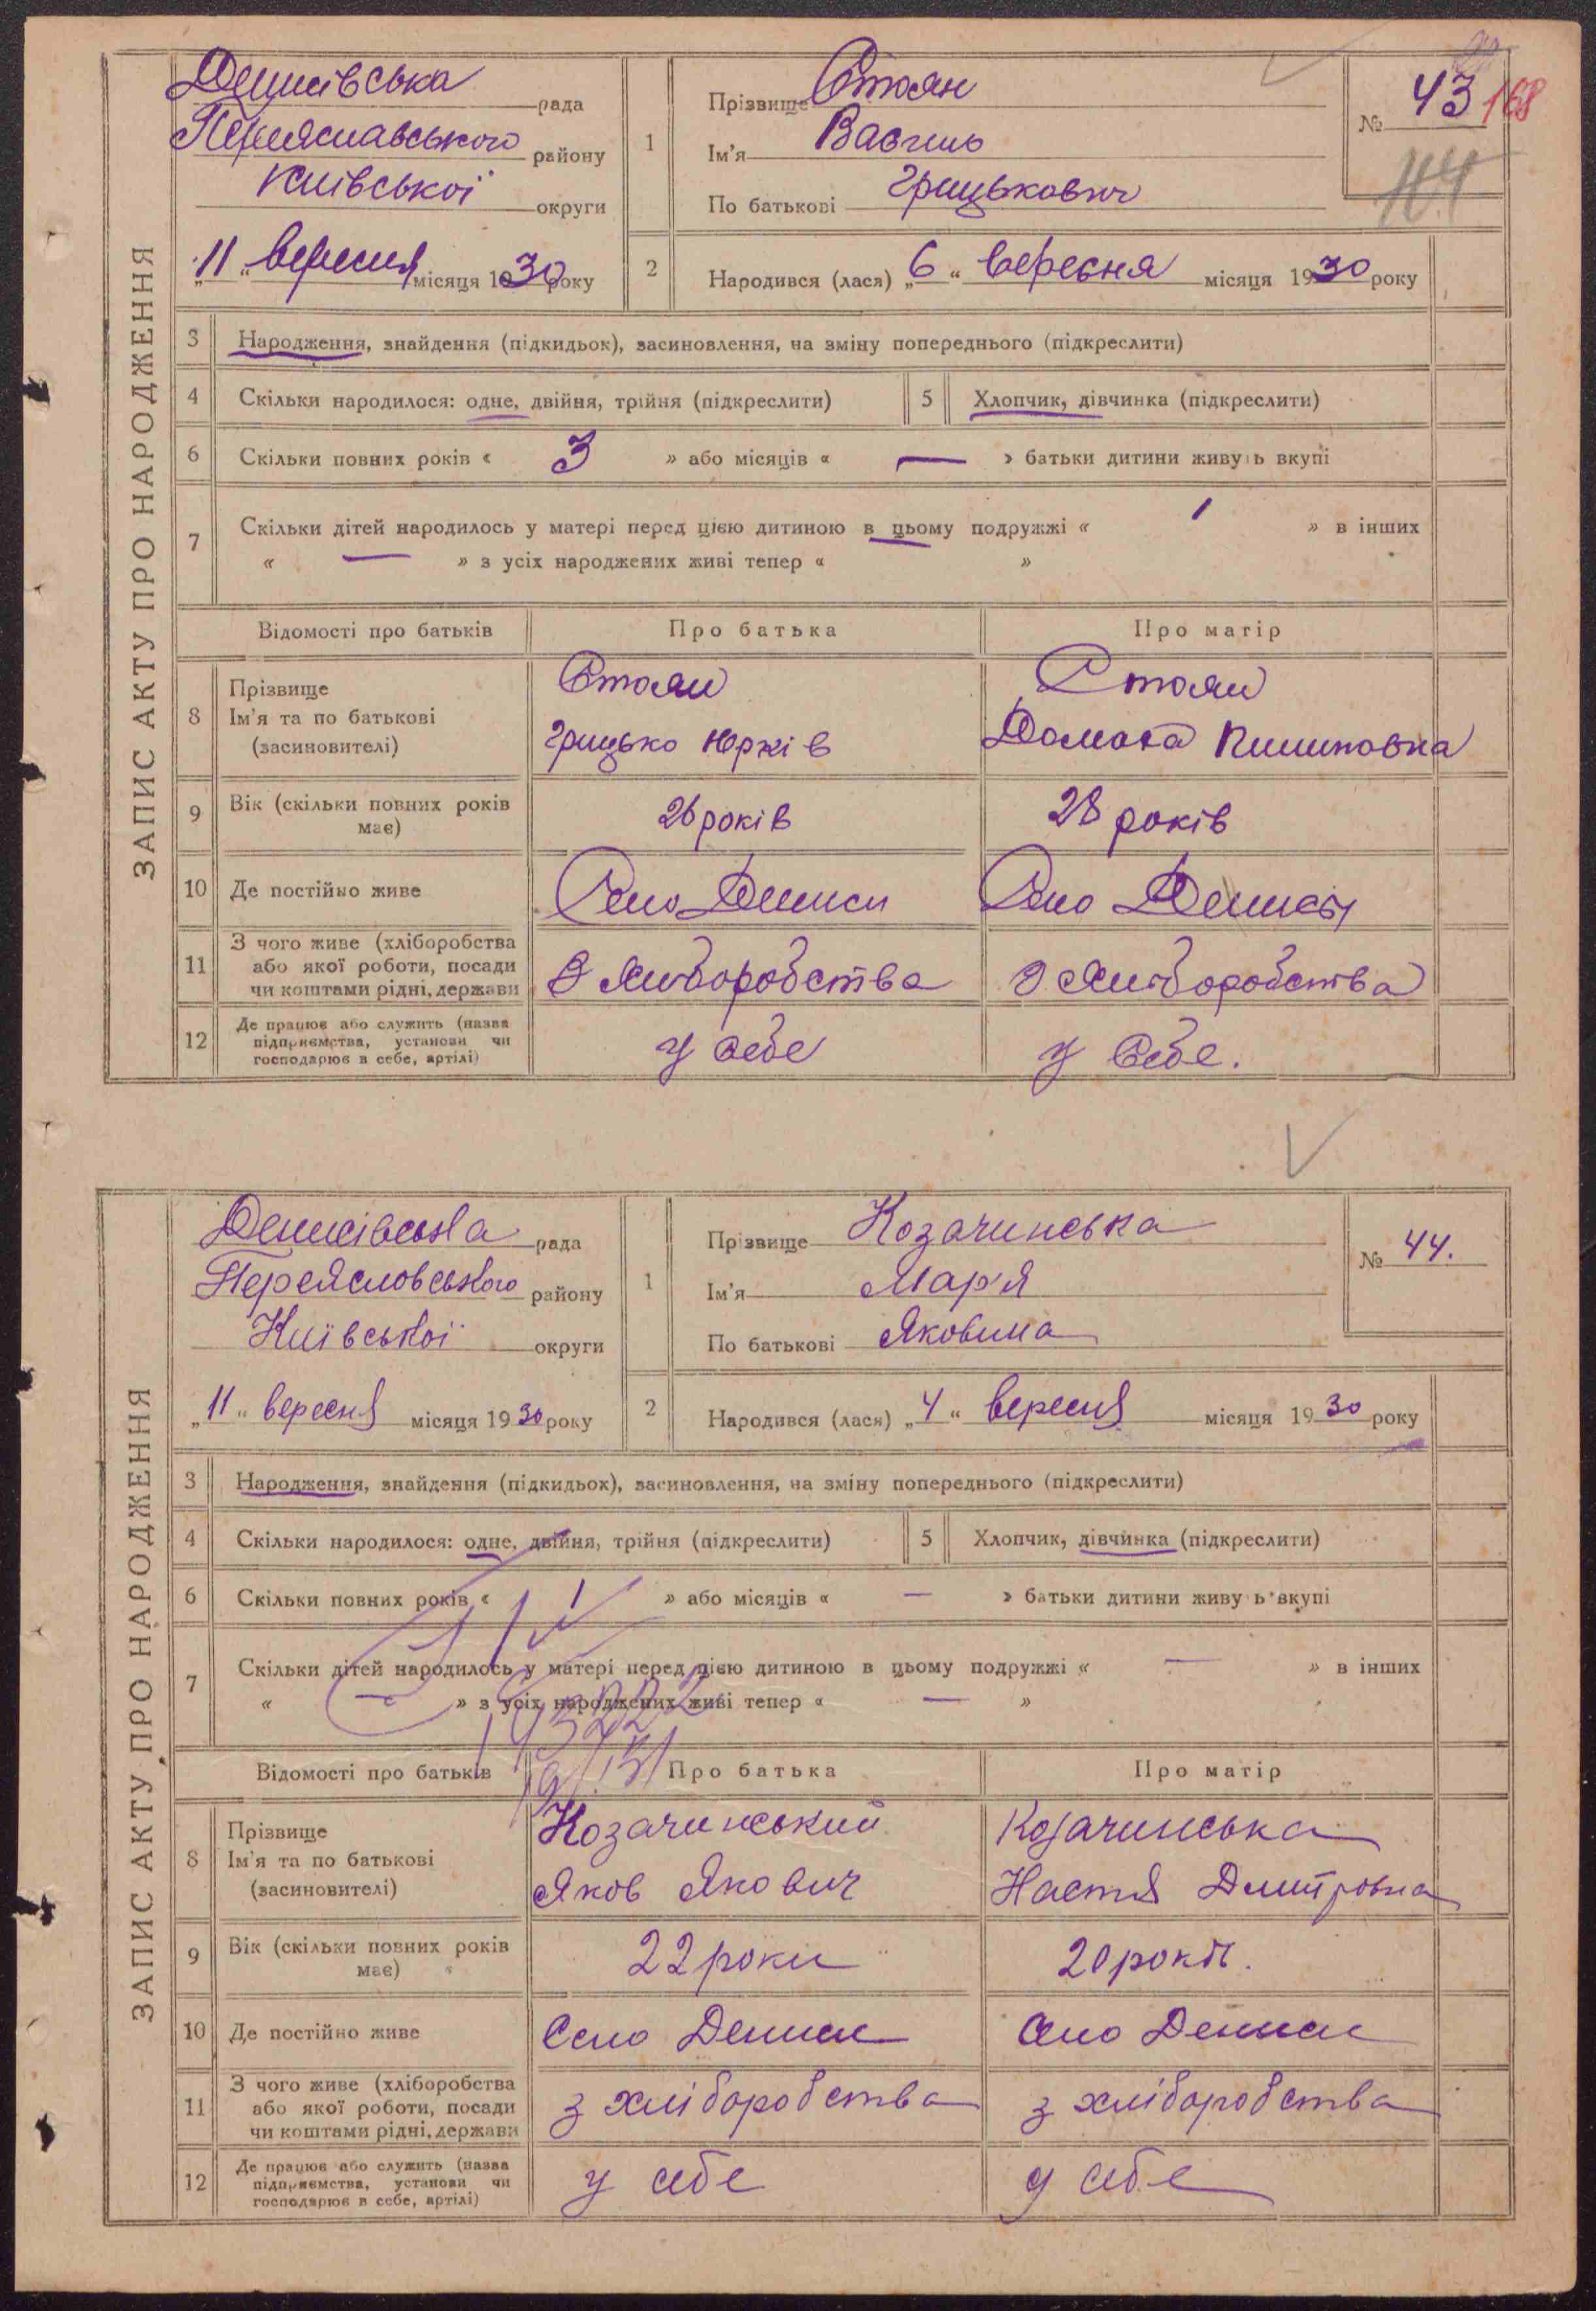 ЗАПИС АКТУ ПРО НАРОДЖЕННЯ
Денисівська рада
Переяславського району
Київської округи
„11“ вересня місяця 1930 року
1
Прізвище Стоян
Ім'я Василь
По батькові Грицькович
№ 43
168
44
2
Народився (лася) „6“ вересня місяця 1930 року
3 Народження, знайдення (підкидьок), засиновлення, на зміну попереднього (підкреслити)
4 Скільки народилося: одне, двійня, трійня (підкреслити) 5 Хлопчик, дівчинка (підкреслити)
6 Скільки повних років « 3 » або місяців « — » батьки дитини живуть вкупі
7 Скільки дітей народилось у матері перед цією дитиною в цьому подружжі « 1 » в інших
« — » з усіх народжених живі тепер « »
Відомості про батьків Про батька Про матір
8 Прізвище
Ім'я та по батькові
(засиновителі)
Стоян
Грицько Юрків
Стоян
Домаха
9 Вік (скільки повних років
має)
26 років
28 років
10 Де постійно живе Село Дениси Село Дениси
11 З чого живе (хліборобства
або якої роботи, посади
чи коштами рідні, держави
З хліборобства З хліборобства
12 Де працює або служить (назва
підприємства, установи чи
господарює в себе, артілі)
у себе у себе.
ЗАПИС АКТУ ПРО НАРОДЖЕННЯ
Денисівська рада
Переясловського району
Київської округи
„11“ вересня місяця 1930 року
1
Прізвище Козачинська
Ім'я Мар'я
По батькові Яковина
№ 44.
2
Народився (лася) „4“ вересня місяця 1930 року
3 Народження, знайдення (підкидьок), засиновлення, на зміну попереднього (підкреслити)
4 Скільки народилося: одне, двійня, трійня (підкреслити) 5 Хлопчик, дівчинка (підкреслити)
6 Скільки повних років « 1 » або місяців « — » батьки дитини живуть вкупі
7 Скільки дітей народилось у матері перед цією дитиною в цьому подружжі « — » в інших
« — » з усіх народжених живі тепер « — »
Відомості про батьків Про батька Про матір
8 Прізвище
Ім'я та по батькові
(засиновителі)
Козачинський
Яков Якович
Козачинська
Настя Дмитровна
9 Вік (скільки повних років
має)
22 роки
20 років.
10 Де постійно живе Село Дениси Село Дениси
11 З чого живе (хліборобства
або якої роботи, посади
чи коштами рідні, держави
з хліборобства з хліборобства
12 Де працює або служить (назва
підприємства, установи чи
господарює в себе, артілі)
у себе у себе